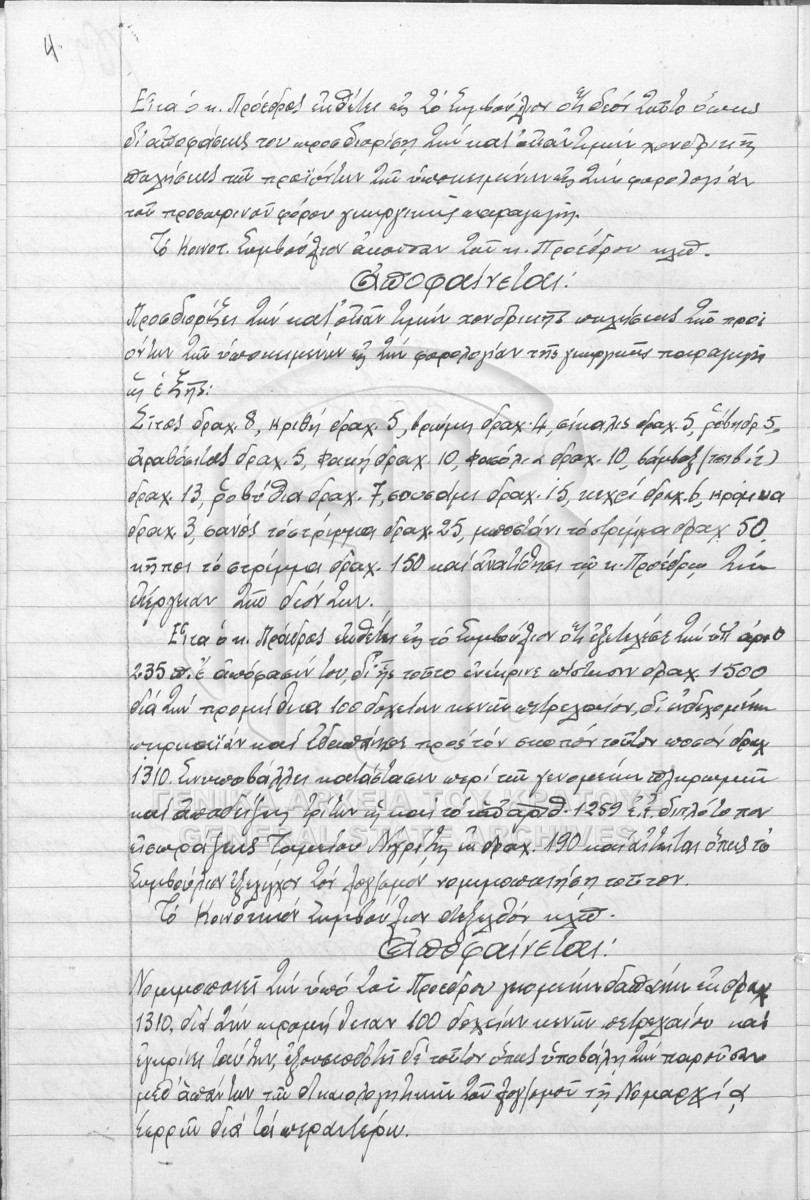 4.
Εἶτα ὁ κ. Πρόεδρος ἐκθέτει εἰς τὸ Συμβούλιον ὅτι δέον τοῦτο ὅπως
δι' ἀποφάσεώς του προσδιορίσῃ τὴν κατ' ὀκᾶν τιμὴν χονδρικῆς
πωλήσεως τῶν προϊόντων τῶν ὑποκειμένων εἰς τὴν φορολογίαν
τοῦ προσωρινοῦ φόρου γεωργικῆς παραγωγῆς.
Τὸ Κοινοτ. Συμβούλιον ἀκοῦσαν τοῦ κ. Προέδρου κλπ.
Ἀποφαίνεται:
Προσδιορίζει τὴν κατ' ὀκᾶν τιμὴν χονδρικῆς πωλήσεως τῶν προϊ
όντων τῶν ὑποκειμένων εἰς τὴν φορολογίαν τῆς γεωργικῆς παραγωγῆς
ὡς ἑξῆς:
Σῖτος δραχ. 8, κριθὴ δραχ. 5, βρώμη δραχ. 4, σίκαλις δραχ. 5, ρόβη δρ 5,
ἀραβόσιτος δραχ. 5, φακῆ δραχ. 10, φασόλια δραχ. 10, βάμβαξ
δραχ. 13, ροβύθια δραχ. 7, σουσάμι δραχ. 15, κεχρὶ δραχ. 6,
δραχ. 3, σανὸς τὸ στρέμμα δραχ. 25, μποστάνι τὸ στρέμμα δραχ 50,
κῆποι τὸ στρέμμα δραχ. 150 καὶ ἀναθέτει τῷ κ. Προέδρῳ τὴν
ἐνέργειαν τῶν δεόντων.
Εἶτα ὁ κ. Πρόεδρος ἐκθέτει εἰς τὸ Συμβούλιον ὅτι ἐξετέλεσε τὴν ὑπ' ἀριθ
235 π. ἔ ἀπόφασίν του, δι' ἧς τοῦτο ἐνέκρινε πίστωσιν δραχ. 1500
διὰ τὴν προμήθεια 100 δοχείων κενῶν πετρελαίου, δι' ἐνδεχομένην
πυρκαϊὰν καὶ ἐδαπάνησε πρὸς τὸν σκοπὸν τοῦτον ποσὸν δραχ
1310. Συνυποβάλλει κατάστασιν περὶ τῶν γενομένων πληρωμῶν
καὶ ἀποδείξεις τρίτων ὡς καὶ τὸ ὑπ' ἀριθ. 1259 ἐ.ἔ. διπλότυπον
εἰσπράξεως Ταμείου Νιγρίτης ἐκ δραχ. 190 καὶ αἰτεῖται ὅπως τὸ
Συμβούλιον ἐξελέγχον τὸν λογ/σμὸν νομιμοποιήσῃ τοῦτον.
Τὸ Κοινοτικὸν Συμβούλιον διεξελθὸν κλπ.
Ἀποφαίνεται:
Νομιμοποιεῖ τὴν ὑπὸ τοῦ Προέδρου γενομένην δαπάνην ἐκ δραχ
1310. διὰ τὴν προμήθειαν 100 δοχείων κενῶν πετρελαίου καὶ
ἐγκρίνει ταύτην, ἐξουσιοδοτεῖ δὲ τοῦτον ὅπως ὑποβάλῃ τὴν παροῦσαν
μεθ' ἁπάντων τῶν δικαιολογητικῶν τοῦ λογ/σμοῦ τῇ Νομαρχίᾳ
Σερρῶν διὰ τὰ περαιτέρω.
ΓΕΝΙΚΑ ΑΡΧΕΙΑ ΤΟΥ ΚΡΑΤΟΥΣ
GENERAL STATE ARCHIVES